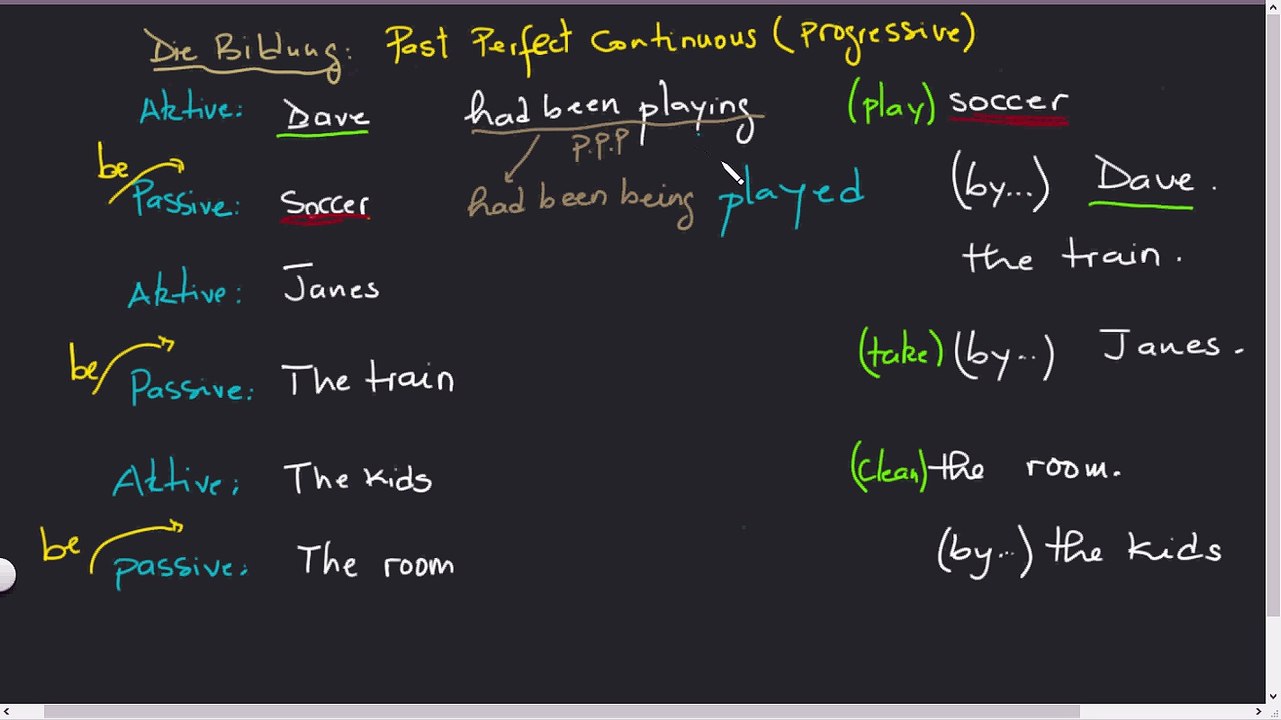 Die Bildung: Past Perfect Continuous (Progressive)
Aktive: Dave had been playing (play) soccer
P.P.P
be
Passive: Soccer had been being played (by...) Dave.
Aktive: Janes the train.
be
Passive: The train (take) (by...) Janes.
Aktive: The kids (clean) the room.
be
passive: The room (by...) the kids